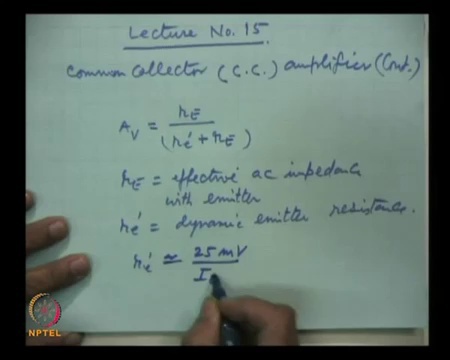 Lecture No. 15
Common Collector (C.C.) amplifier (Cont.)
A_V = r_E / (r_e' + r_E)
r_E = effective ac impedance
with emitter
r_e' = dynamic emitter resistance.
r_e' ≈ 25 mV / I
NPTEL